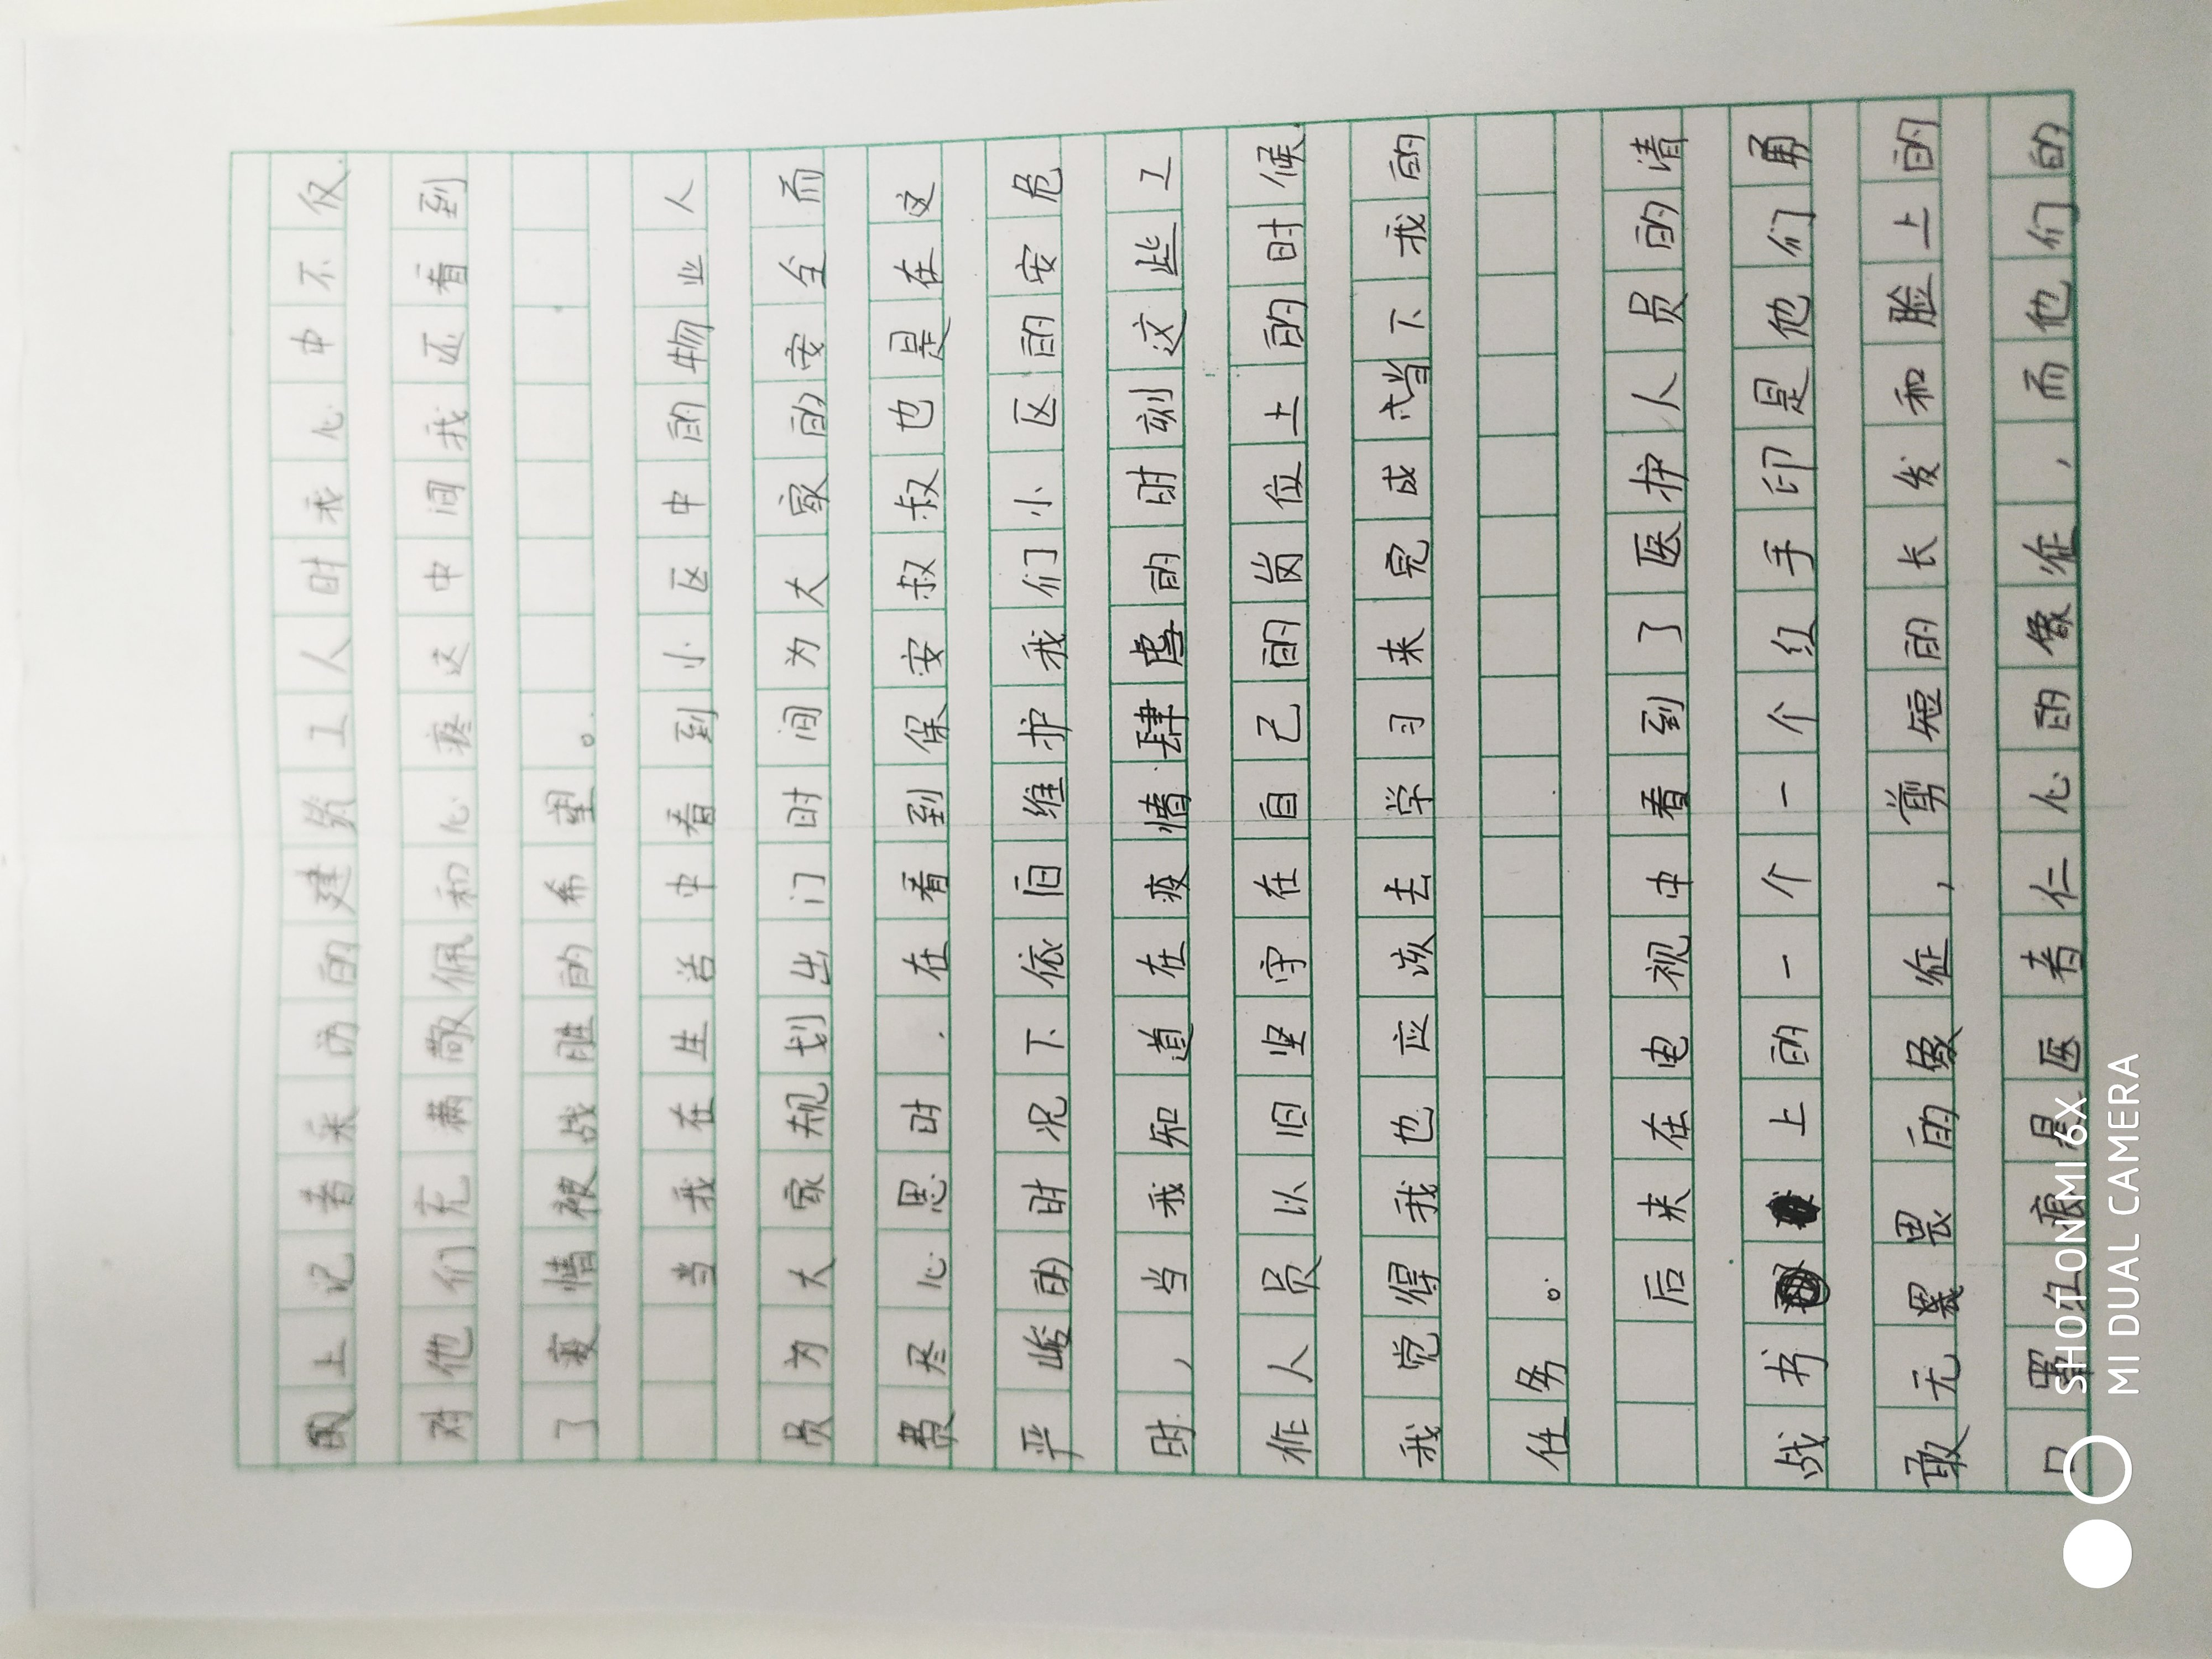 的上记者采访的建筑工人时我心中不仅.
对他们充满敬佩和心疼这中间我还看到
了疫情被战胜的希望。
当我在生活中看到小区中的物业人
员为大家规划出门时间为大家的安全而
费尽心思时.在看到保安叔叔也是在这
严峻的时况下依旧维护我们小区的安危
时,当我知道在疫情肆虐的时刻这些工
作人员以旧坚守在自己的岗位上的时候.
我觉得我也应该去学习来完成当下我的
任务。
后来在电视中看到了医护人员的请
战书上的一个一个红手印是他们勇
敢无畏的像征,剪短的长发和脸上的
口罩红痕是医者仁心的像征,而他们的
SHOT ON MI 6X
MI DUAL CAMERA